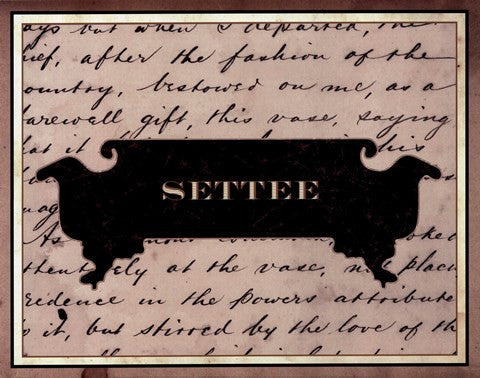 ays but when I departed, the
ief, after the fashion of the
ountry, bestowed on me, as a
arewell gift, this vase, saying
hat it his
SETTEE
As common, ooked
ely at the vase, place
redence in the powers attribute
o it, but stirred by the love of th